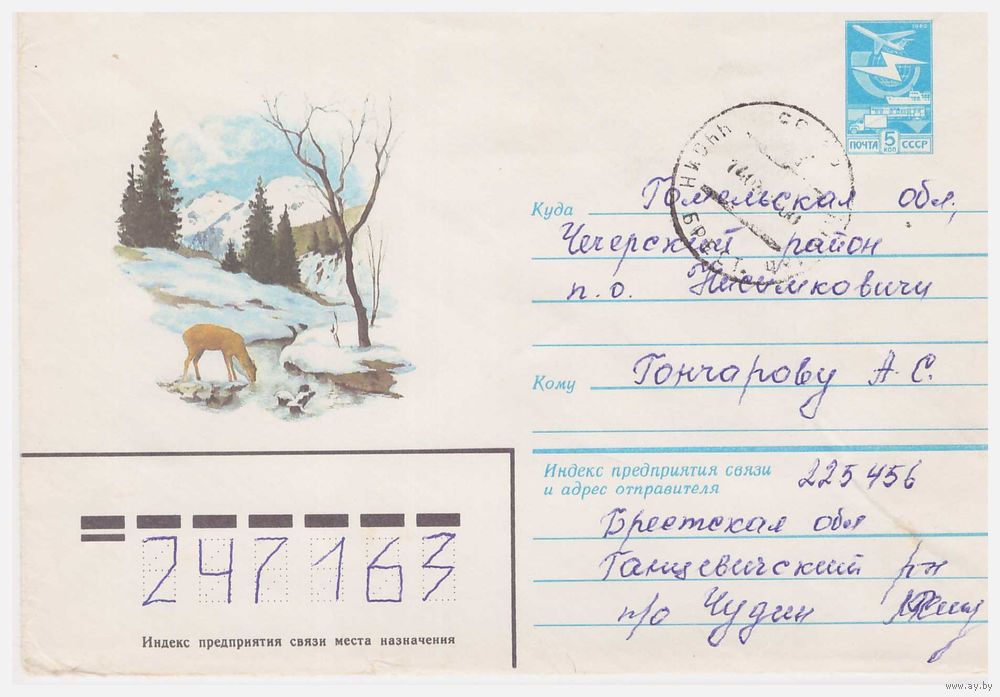 1982
ПОЧТА 5 КОП СССР
Куда Гомельская обл,
Чечерский район
п.о. Нисимковичи
Кому Гончарову А.С.
Индекс предприятия связи
и адрес отправителя
225456
Брестская обл
Ганцевичский рн
п/о Чудин
247163
Индекс предприятия связи места назначения
www.ay.by